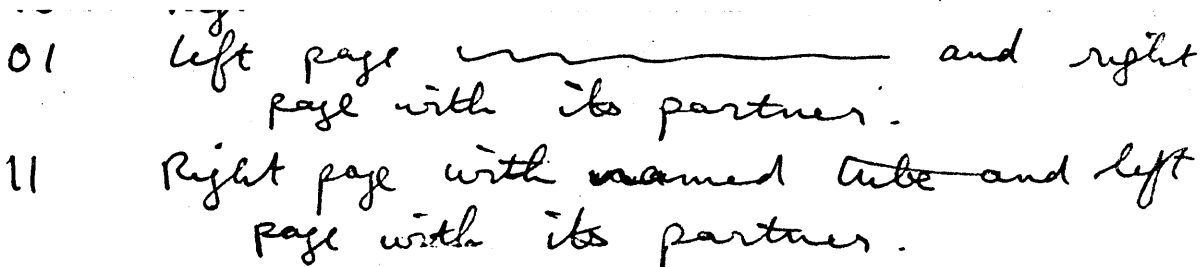 01 left page and right
page with its partner.
11 Right page with named tube and left
page with its partner.